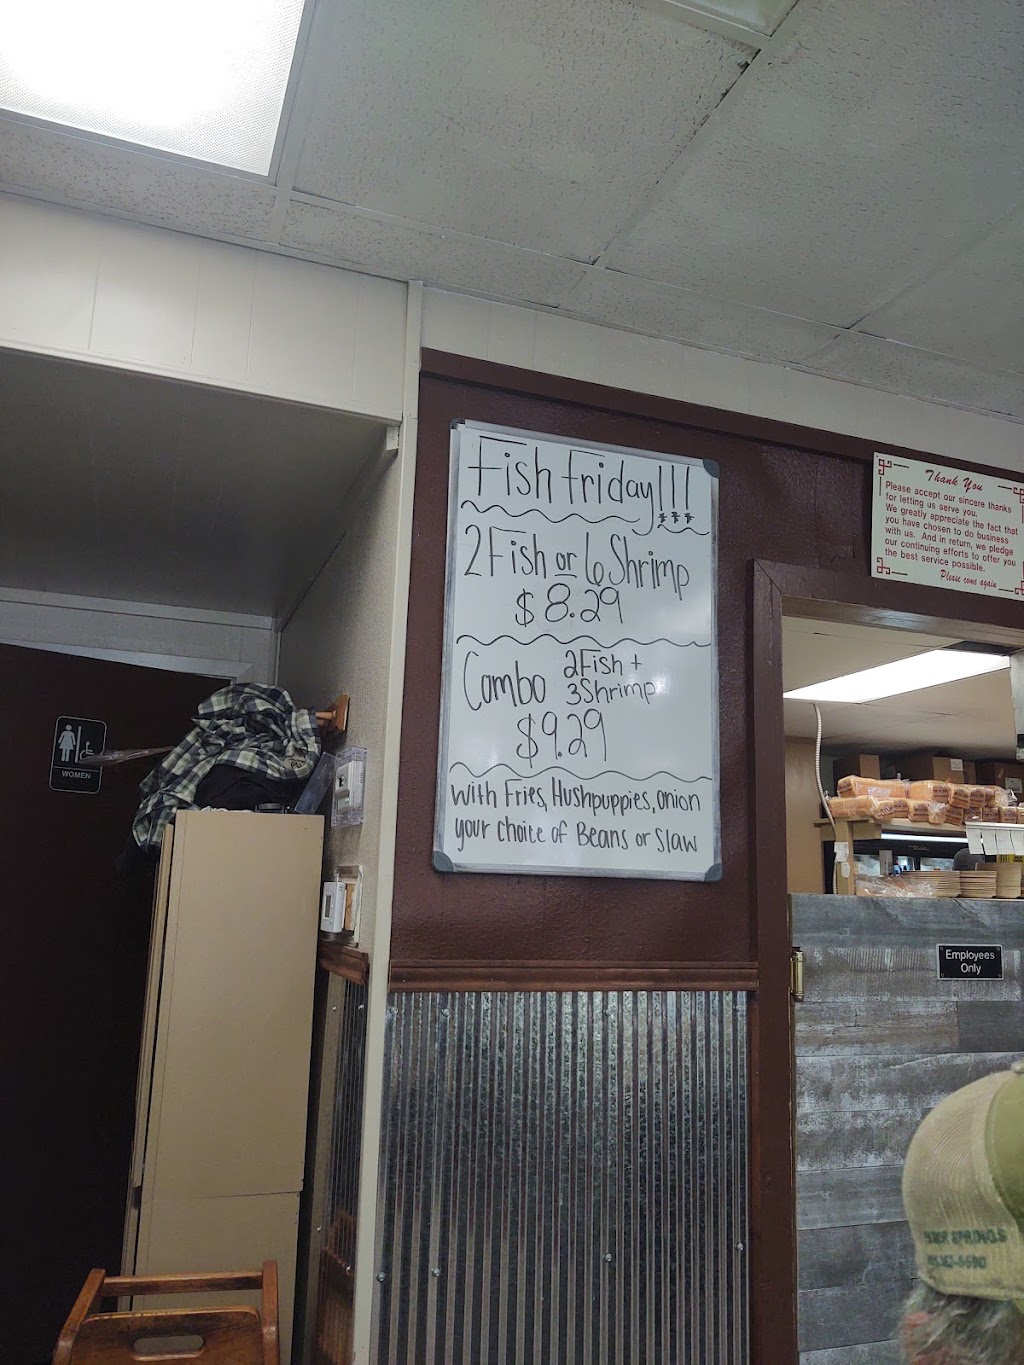 Fish Friday!!!
2 Fish or 6 Shrimp
$8.29
Combo 2 Fish +
3 Shrimp
$9.29
with Fries, Hushpuppies, onion
your choice of Beans or Slaw
Thank You
Please accept our sincere thanks
for letting us serve you.
We greatly appreciate the fact that
you have chosen to do business
with us. And in return, we pledge
our continuing efforts to offer you
the best service possible.
Please come again
WOMEN
Employees
Only
SPRINGS